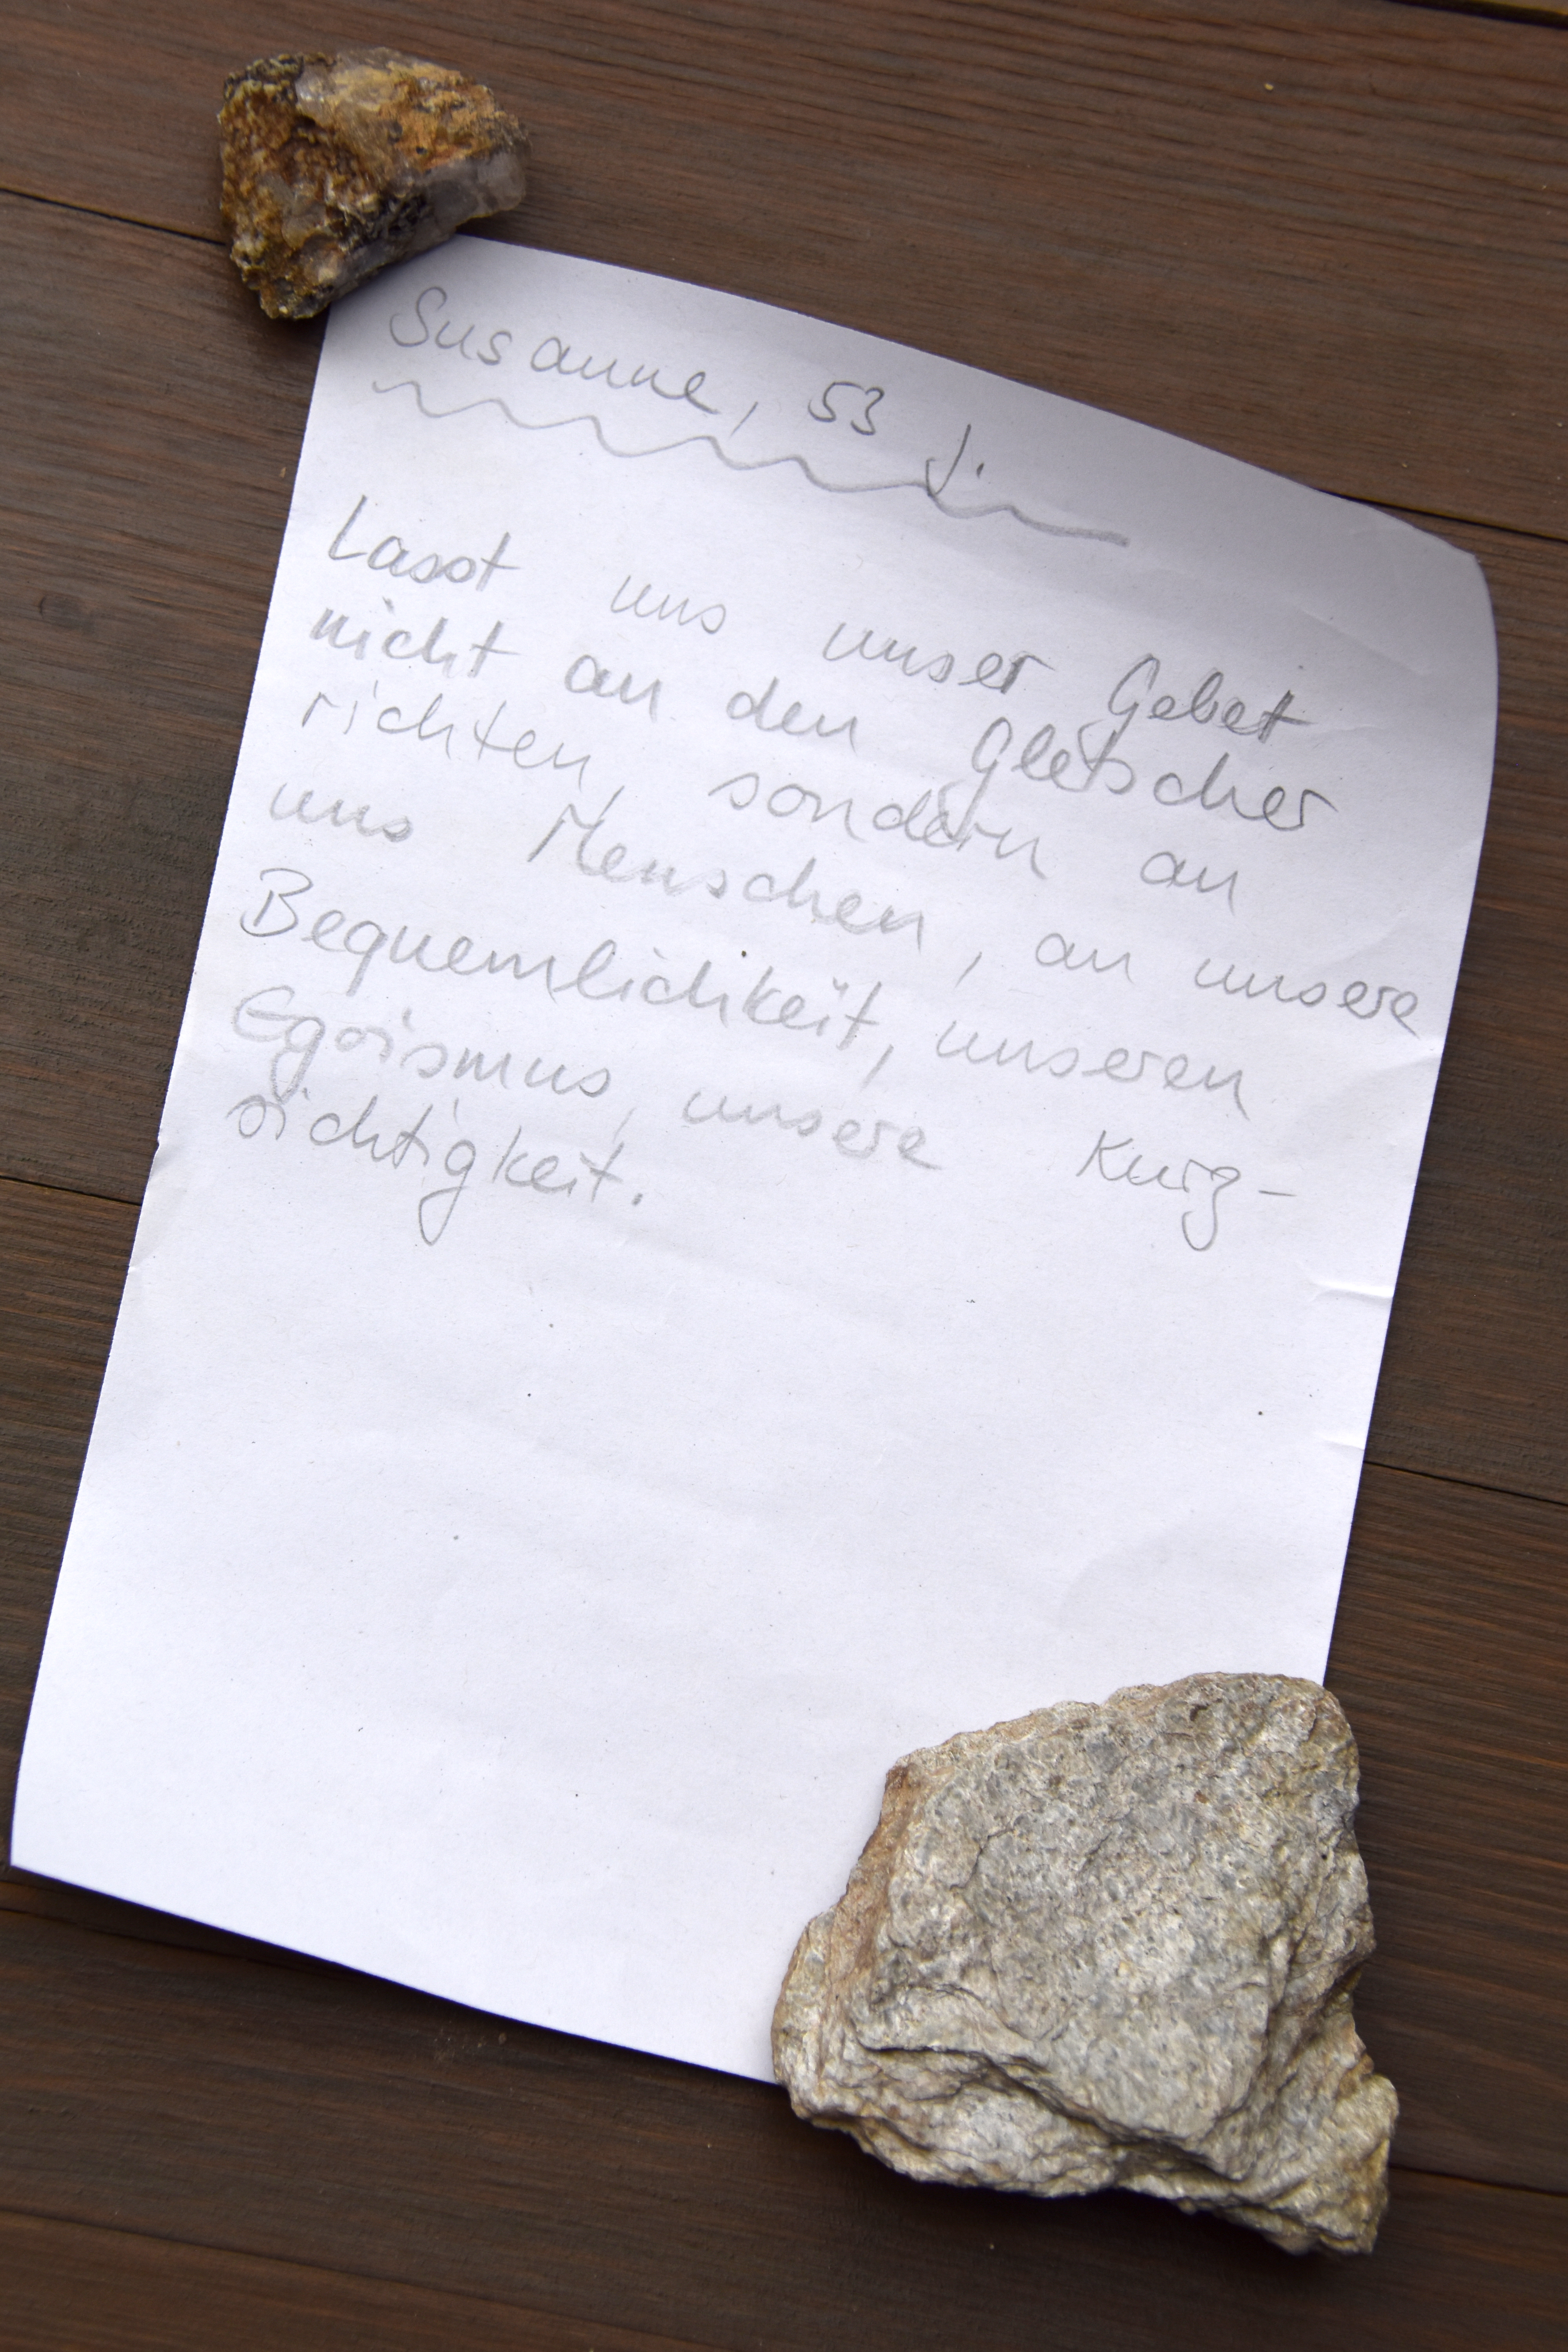 Susanne, 53 J.
Lasst uns unser Gebet
nicht an den Gletscher
richten, sondern an
uns Menschen, an unsere
Bequemlichkeit, unseren
Egoismus, unsere Kurz-
sichtigkeit.